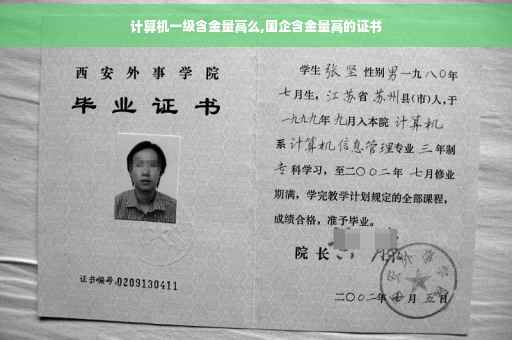 计算机一级含金量高么,国企含金量高的证书
西安外事学院
毕业证书
证书编号:0209130411
学生 张坚 性别男 一九八〇年
七月生, 江苏省 苏州县(市)人,于
一九九九年 九月入本院 计算机
系 计算机信息管理专业 三 年制
专科学习, 至二〇〇二年 七月修业
期满, 学完教学计划规定的全部课程,
成绩合格, 准予毕业。
院长
二〇〇二年 月 五日